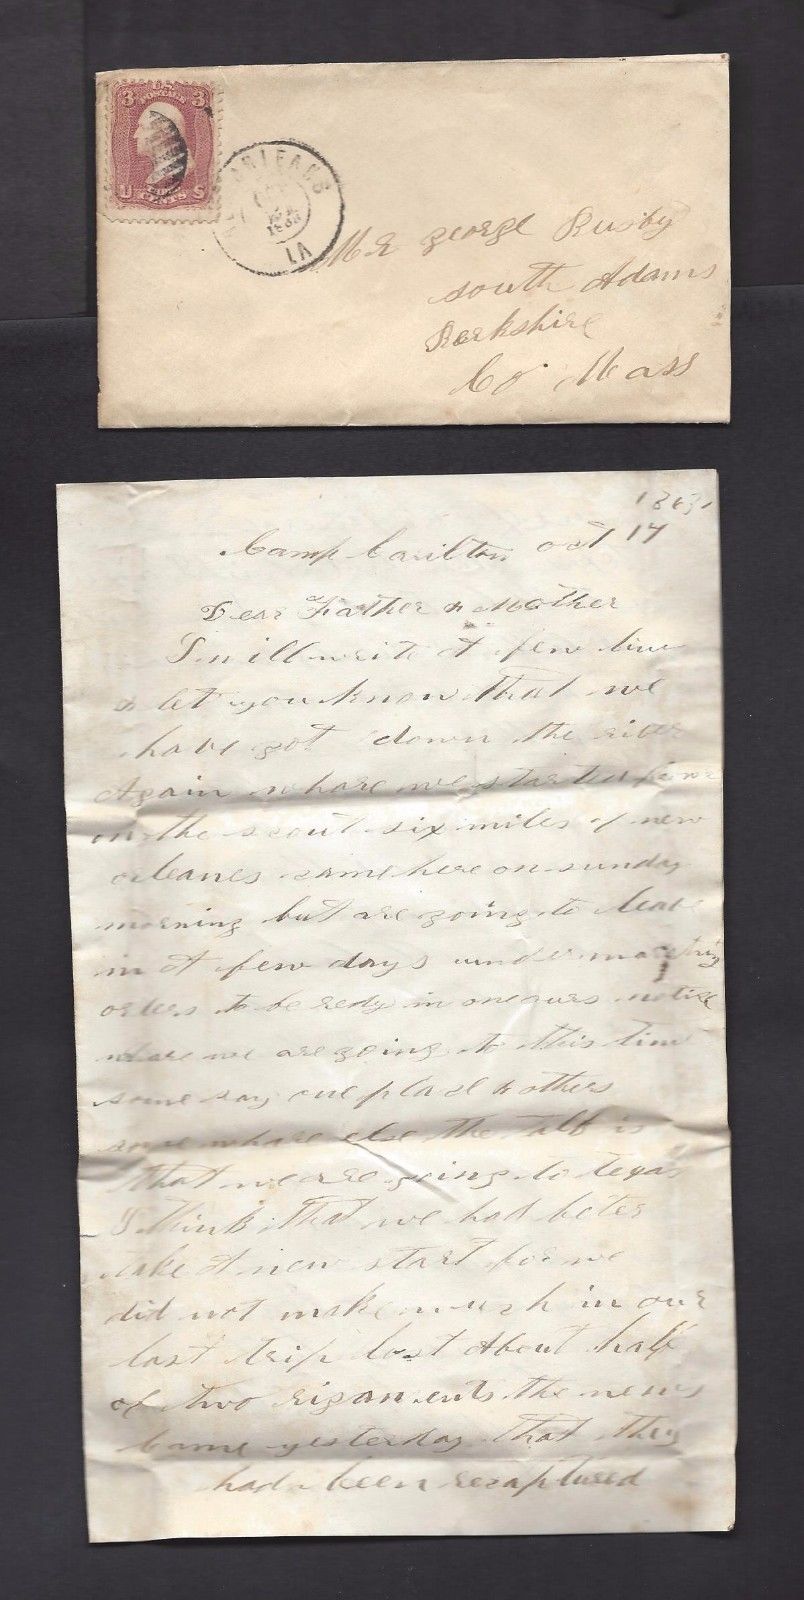 3 U.S. 3
POSTAGE
U S
CENTS
ORLEANS
LA
Mr george Rusby
south Adams
Berkshire
Co Mass
1863
Camp Carilton oct 17
Dear Father & Mother
I will write A few lines
& let you know that we
have got down the river
Again whare we started from
on the scout six miles of new
orleanes came here on sunday
morning but are going to leave
in A few days under marching
orders to be redy in one ours notise
whare we are going to this time
some say one plase & others
some whare else the talk is
that we are going to texas
I think that we had beter
take A new start for we
did not make much in our
last trip lost About half
of two rigaments the news
Came yesterday that they
had been recaptured